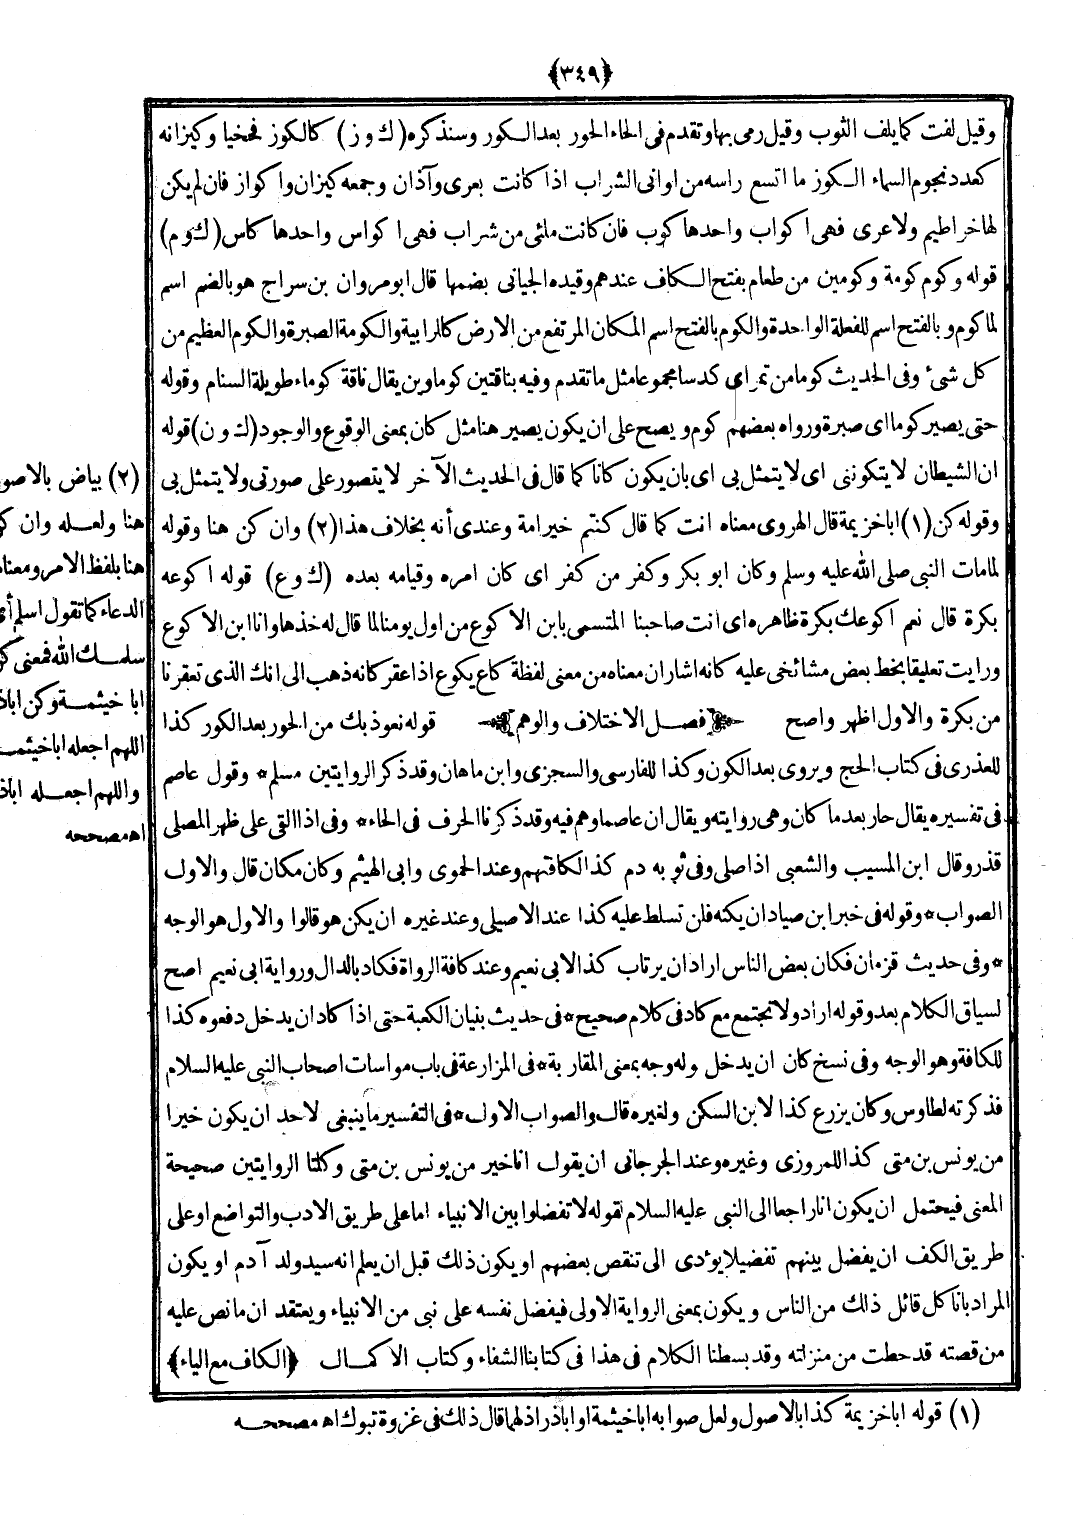 ﴿٣٤٩﴾
وقيل لفت كما يلف الثوب وقيل رمى بها وتقدم فى الحاء الحور بعد الكور وسنذكره (ك و ز) كالكوز مجخيا وكيزانه
كعدد نجوم السماء الكوز ما اتسع راسه من اوانى الشراب اذا كانت بعرى وآذان وجمعه كيزان واكواز فان لم يكن
لها خراطيم ولا عرى فهى اكواب واحدها كوب فان كانت ملئى من شراب فهى اكواس واحدها كاس (ك و م)
قوله وكوم كومة وكومين من طعام بفتح الكاف عندهم وقيده الجيانى بضمها قال ابو مروان بن سراج هو بالضم اسم
لما كوم وبالفتح اسم للفعلة الواحدة والكوم بالفتح اسم المكان المرتفع من الارض كالرابية والكومة الصبرة والكوم العظيم من
كل شئ وفى الحديث كوما من تمر اى كدسا مجموعا مثل ما تقدم وفيه بناقتين كوماوين يقال ناقة كوماء طويلة السنام وقوله
حتى يصير كوما اى صبرة ورواه بعضهم كوم ويصح على ان يكون يصير هنا مثل كان بمعنى الوقوع والوجود (ك و ن) قوله
ان الشيطان لا يتكوننى اى لا يتمثل بى اى بان يكون كانا كما قال فى الحديث الآخر لا يتصور على صورتى ولا يتمثل بى
وقوله كن (١) ابا خزيمة قال الهروى معناه انت كما قال كنتم خير امة وعندى أنه بخلاف هذا (٢) وان كن هنا وقوله
لما مات النبى صلى الله عليه وسلم وكان ابو بكر وكفر من كفر اى كان امره وقيامه بعده (ك و ع) قوله اكوعه
بكرة قال نعم اكوعك بكرة ظاهره اى انت صاحبنا المتسمى بابن الاكوع من اول يومنا لما قال له خذها وانا ابن الاكوع
ورايت تعليقا بخط بعض مشائخى عليه كانه اشار ان معناه من معنى لفظة كاع يكوع اذا عقر كانه ذهب الى انك الذى تعقرنا
من بكرة والاول اظهر واصح ﴿فصل الاختلاف والوهم﴾ قوله نعوذ بك من الحور بعد الكور كذا
للعذرى فى كتاب الحج ويروى بعد الكون وكذا للفارسى والسجزى وابن ماهان وقد ذكر الروايتين مسلم* وقول عاصم
فى تفسيره يقال حار بعد ما كان وهى روايته ويقال ان عاصما وهم فيه وقد ذكرنا الحرف فى الحاء* وفى اذا القى على ظهر المصلى
قذر وقال ابن المسيب والشعبى اذا صلى وفى ثوبه دم كذا لكافتهم وعند الحموى وابى الهيثم وكان مكان قال والاول
الصواب* وقوله فى خبر ابن صياد ان يكنه فلن تسلط عليه كذا عند الاصيلى وعند غيره ان يكن هو قالوا والاول هو الوجه
*وفى حديث قزمان فكان بعض الناس اراد ان يرتاب كذا لابى نعيم وعند كافة الرواة فكاد بالدال ورواية ابى نعيم اصح
لسياق الكلام بعد وقوله اراد ولا تجتمع مع كاد فى كلام صحيح* فى حديث بنيان الكعبة حتى اذا كاد ان يدخل دفعوه كذا
للكافة وهو الوجه وفى نسخ كان ان يدخل وله وجه بمعنى المقاربة* فى المزارعة فى باب مواسات اصحاب النبى عليه السلام
فذكرته لطاوس وكان يزرع كذا لابن السكن ولغيره قال والصواب الاول* فى التفسير ما ينبغى لاحد ان يكون خيرا
من يونس بن متى كذا للمروزى وغيره وعند الجرجانى ان يقول انا خير من يونس بن متى وكلتا الروايتين صحيحة
المعنى فيحتمل ان يكون انا راجعا الى النبى عليه السلام لقوله لا تفضلوا بين الانبياء اما على طريق الادب والتواضع او على
طريق الكف ان يفضل بينهم تفضيلا يؤدى الى تنقص بعضهم او يكون ذلك قبل ان يعلم انه سيد ولد آدم او يكون
المراد بانا كل قائل ذلك من الناس ويكون بمعنى الرواية الاولى فيفضل نفسه على نبى من الانبياء ويعتقد ان ما نص عليه
من قصته قد حطت من منزلته وقد بسطنا الكلام فى هذا فى كتابنا الشفاء وكتاب الاكمال ﴿الكاف مع الياء﴾
(١) قوله ابا خزيمة كذا بالاصول ولعل صوابه ابا خيثمة او اباذر اذ لهما قال ذلك فى غزوة تبوك اه مصححه
(٢) بياض بالاصو
هنا ولعله وان ك
هنا بلفظ الامر ومعنا
الدعاء كما تقول اسلم أى
سلمك الله فمعنى ك
ابا خيثمة وكن اباذ
اللهم اجعله ابا خيثمـ
واللهم اجعله اباذ
اه مصححه